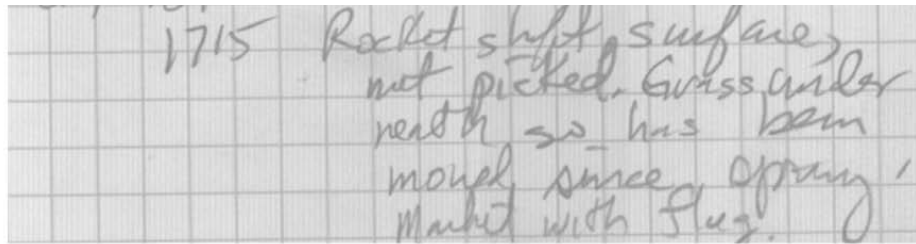 1715 Rocket shft, surface,
not picked. Grass under
neath so has been
moved since spring,
Marked with flag.